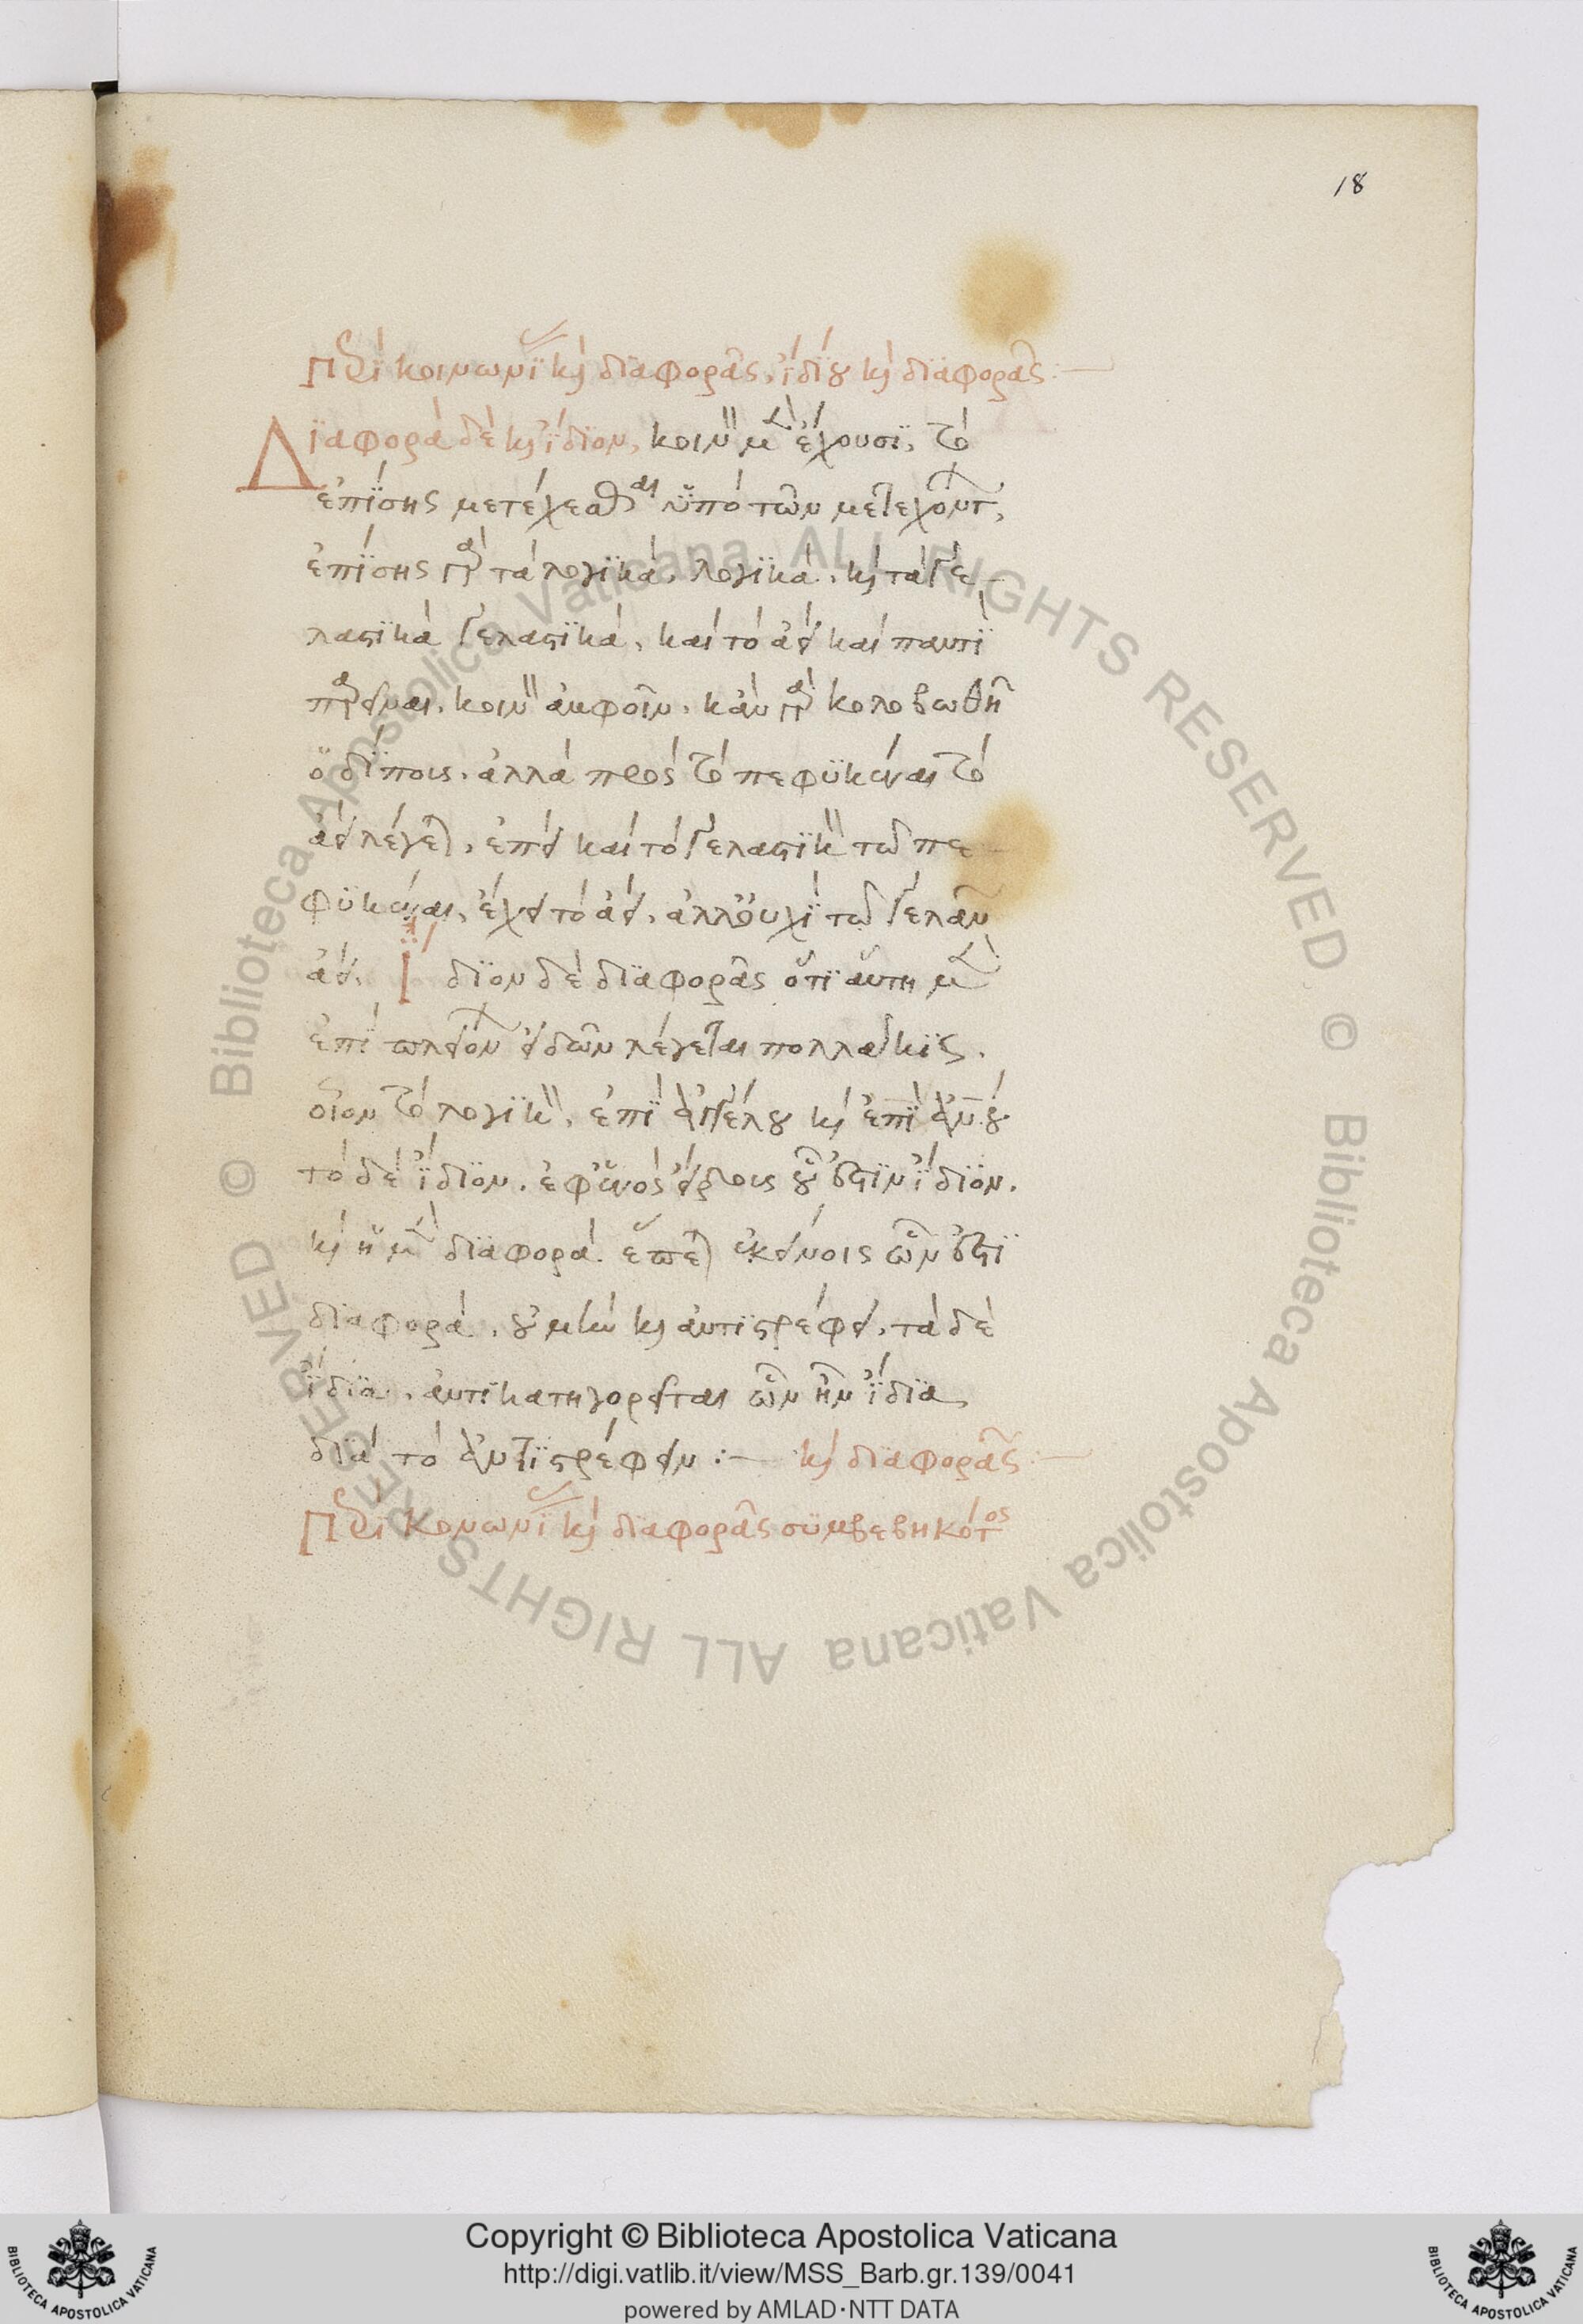 18
Περὶ κοινωνίας καὶ διαφορᾶς, ἰδίου καὶ διαφορᾶς :—
Διαφορὰ δὲ καὶ ἴδιον, κοινὸν μὲν ἔχουσι, τὸ
ἐπίσης μετέχεσθαι ὑπὸ τῶν μετεχόντων,
ἐπίσης γὰρ τὰ λογικὰ, λογικὰ, καὶ τὰ γε-
λαστικὰ γελαστικὰ, καὶ τὸ ἀεὶ καὶ παντὶ
παρεῖναι, κοινὸν ἀμφοῖν. κἂν γὰρ κολοβωθῆ
ὁ δίπους, ἀλλὰ πρὸς τὸ πεφυκέναι τὸ
ἀεὶ λέγεται, ἐπεὶ καὶ τὸ γελαστικὸν τῶ πε-
φυκέναι, ἔχει τὸ ἀεὶ, ἀλλ' οὐχὶ τῶ γελᾶν
ἀεὶ. Ἴδιον δὲ διαφορᾶς ὅτι αὕτη μὲν
ἐπὶ πλειόνων εἰδῶν λέγεται πολλάκις.
οἷον τὸ λογικὸν, ἐπὶ ἀγγέλου καὶ ἐπὶ ἀνου
τὸ δὲ ἴδιον, ἐφ' ἑνὸς εἴδους οὗ ἐστὶν ἴδιον.
καὶ ἡ μὲν διαφορὰ ἕπεται ἐκείνοις ὧν ἐστὶ
διαφορὰ, οὐ μὴν καὶ ἀντιστρέφει, τὰ δὲ
ἴδια, ἀντικατηγορεῖται ὧν ἦν ἴδια,
διὰ τὸ ἀντιστρέφειν :— καὶ διαφορᾶς :—
Περὶ κοινωνίας καὶ διαφορᾶς συμβεβηκότος
© Biblioteca Apostolica Vaticana ALL RIGHTS RESERVED © Biblioteca Apostolica Vaticana ALL RIGHTS RESERVED
Copyright © Biblioteca Apostolica Vaticana
http://digi.vatlib.it/view/MSS_Barb.gr.139/0041
powered by AMLAD·NTT DATA
BIBLIOTECA APOSTOLICA VATICANA
BIBLIOTECA APOSTOLICA VATICANA